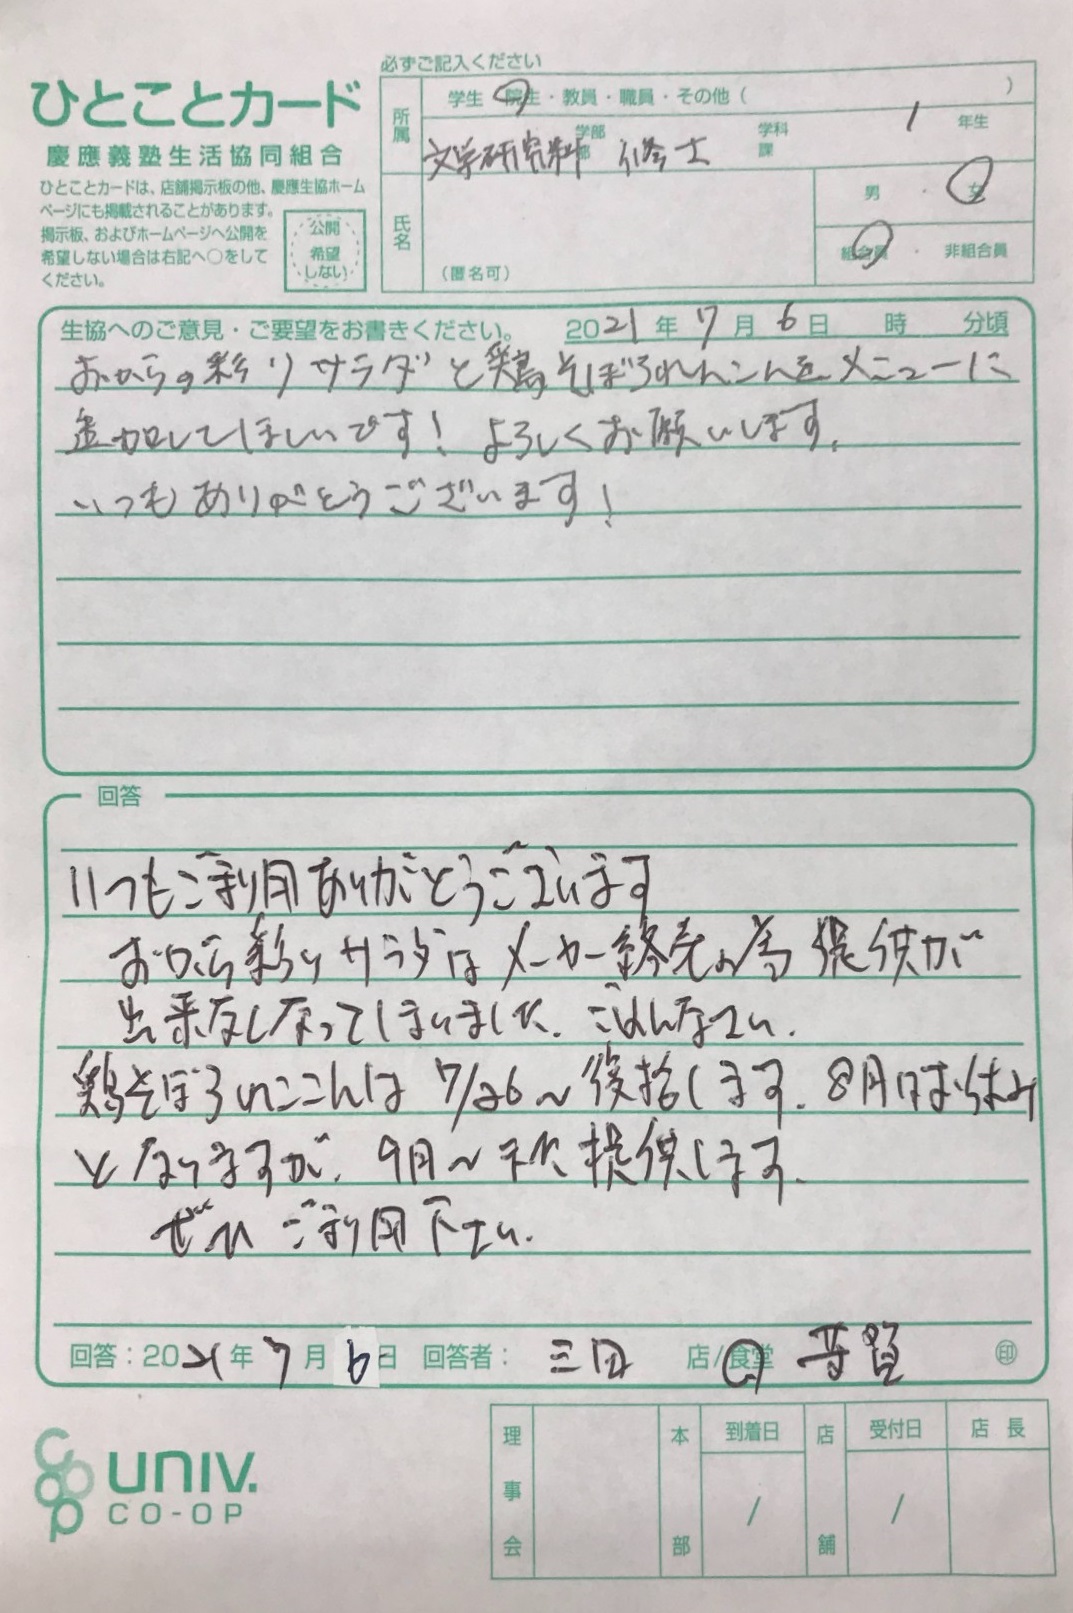 必ずご記入ください
ひとことカード
慶應義塾生活協同組合
ひとことカードは、店舗掲示板の他、慶應生協ホーム
ページにも掲載されることがあります。
掲示板、およびホームページへ公開を
希望しない場合は右記へ○をして
ください。
公開
希望
しない
所属
学生・院生・教員・職員・その他（　）
文学研究科 学部 部 修士 学科 課 1 年生
氏名
（匿名可）
男・女
組合員・非組合員
生協へのご意見・ご要望をお書きください。 2021年7月6日 時 分頃
おからの彩りサラダと鶏そぼろれんこんをメニューに
追加してほしいです！よろしくお願いします。
いつもありがとうございます！
回答
いつもご利用ありがとうございます
おから彩りサラダはメーカー終売の為 提供が
出来なくなってしまいました。ごめんなさい。
鶏そぼろれんこんは 7/26〜復活します。8月はお休み
となりますが、9月〜また提供します。
ぜひ ご利用下さい。
回答：2021年7月6日 回答者： 三田 店/食堂 印
UNIV.
CO-OP
理事会
本部
到着日
/
店舗
受付日
/
店長